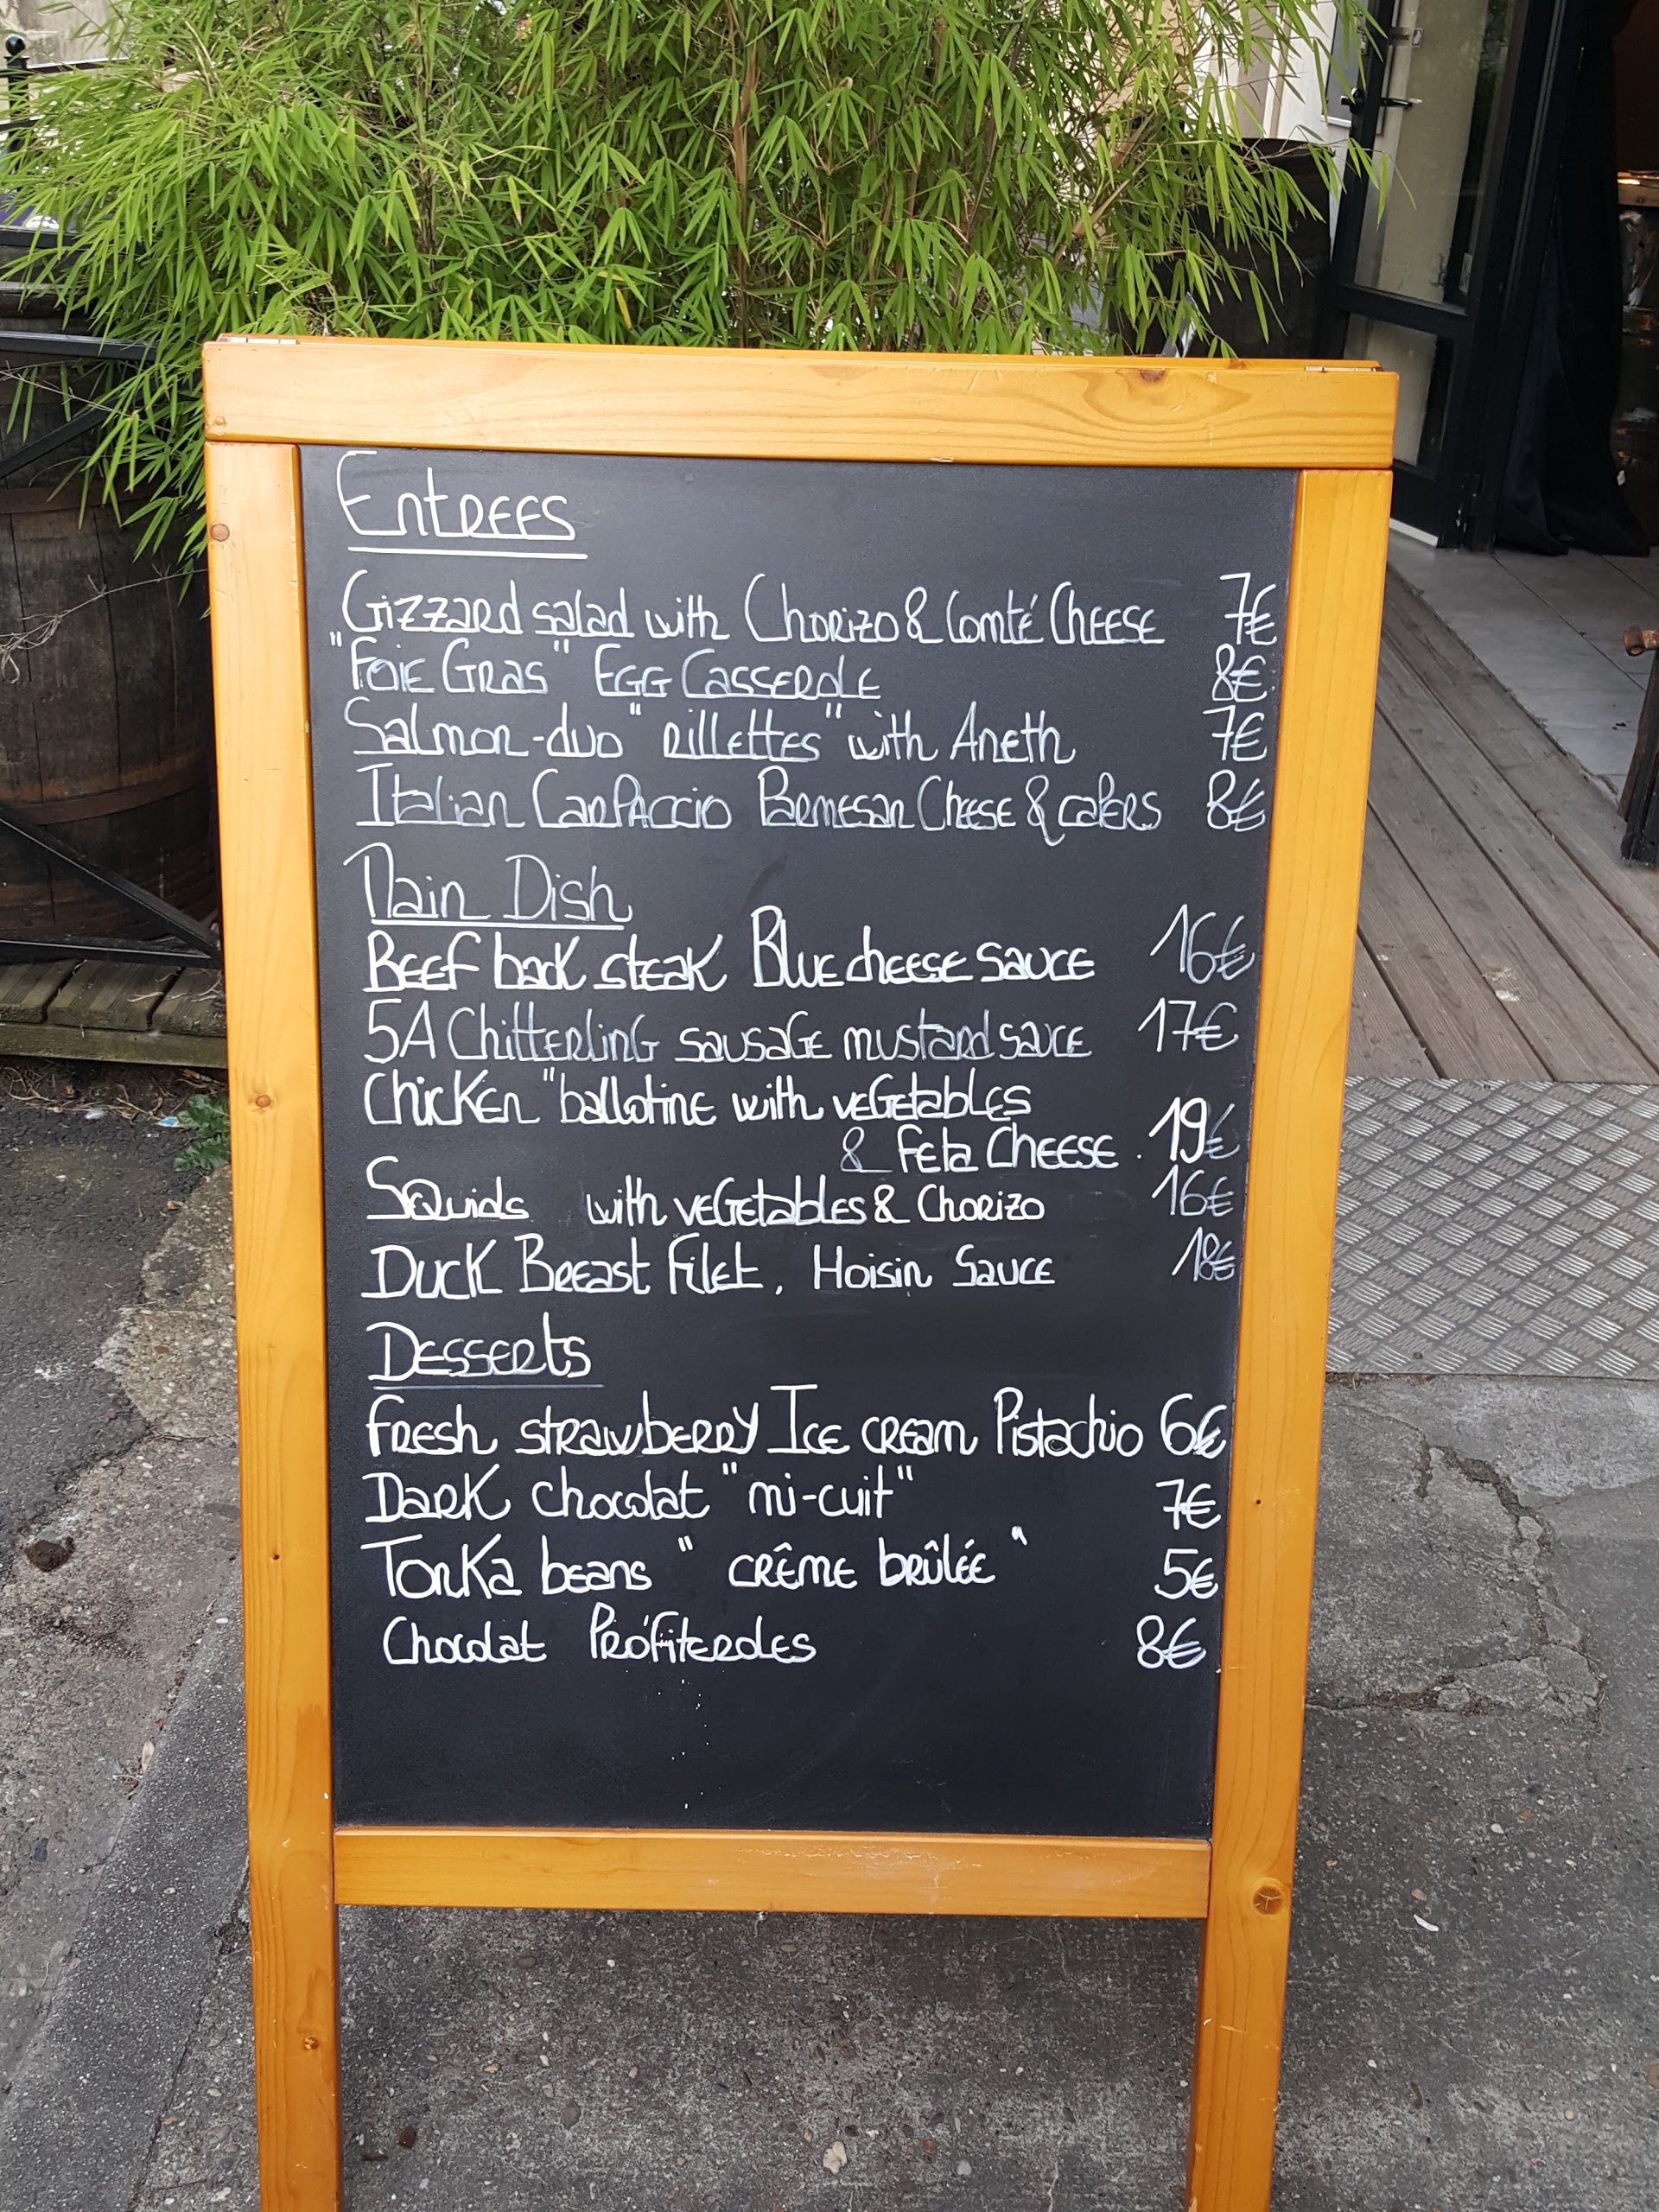 Entrees
Gizzard salad with Chorizo & Comté Cheese 7€
"Foie Gras" Egg Casserole 8€
Salmon-duo "rillettes" with Aneth 7€
Italian Carpaccio Parmesan Cheese & capers 8€
Main Dish
Beef back steak Blue cheese sauce 16€
5A Chitterling sausage mustard sauce 17€
Chicken "ballotine with vegetables
& Feta Cheese. 19€
Squids with vegetables & Chorizo 16€
Duck Breast Filet, Hoisin Sauce 18€
Desserts
Fresh strawberry Ice cream Pistachio 6€
Dark chocolat "mi-cuit" 7€
Tonka beans "crême brûlée" 5€
Chocolat Profiteroles 8€